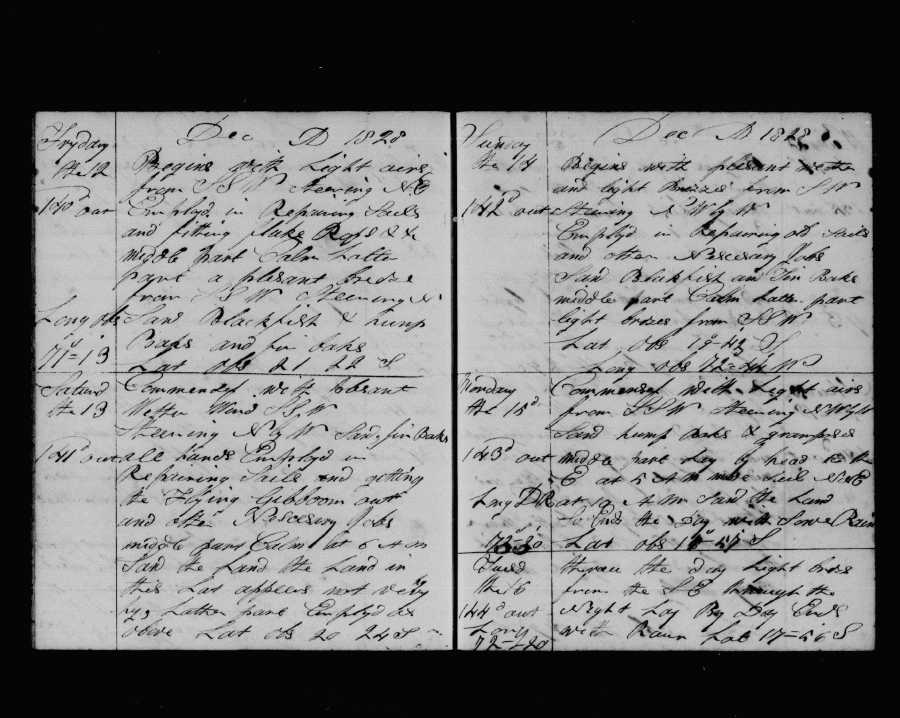 Dec AD 1828
Fryday
the 12
Begins with Light airs
from SSW Steering NE
140d out
Employd in Repairing Sails
and fitting flake Rops &c
middle part Calm Latter
part a plesant breeze
from SSW Steering N
Long obs
Saw Blackfish & hump
71=13
Baks and fin baks
Lat obs 21 22 S
Saturd
the 13
Commences with plesant
Wether Wind SSW
Steering N by W Saw fin Baks
141d out
all hands Employd in
Repairing Sails and getting
the Flying Gibboom out
and other Nescesery Jobs
middle part Calm at 6 A M
Saw the Land the Land in
this Lat appears not very
Latter part Employd as
obive Lat obs 20 24 S
Dec AD 1828
Sunday
the 14
Begins with plesant wether
and light Breezes from SW
142d out
Steering N W by W
Employd in Repairing old Sails
and other Nescesary Jobs
Saw Blackfish and Fin Baks
middle part Calm Latter part
light brezes from SSW
Lat obs 19=43 S
Long obs 72=44 W
Monday
the 15d
Commences with Light airs
from SSW Steering NW by W
Saw hump Baks & grampses
143d out
middle part Lay by head to the
E at 5 A M made Sail NNE
Long DR
at 10 A M Saw the Land
So Ends the Day with Some Rain
72=30
Lat obs 18=57 S
Tuesd
the 16
throue the Day Light brees
from the SE through the
144d out
Night Lay By Day Ends
Long
with Raun Lat 17=56 S
72=20